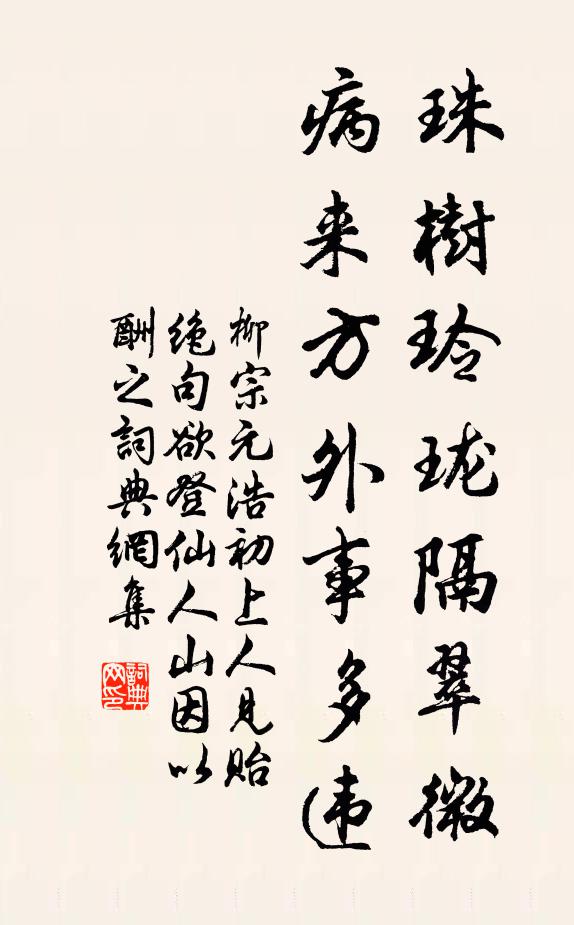 珠樹玲珑隔翠微
病来方外事多违
柳宗元浩初上人見貽
绝句欲登仙人山因以
酬之詞典網集
詞典
网印